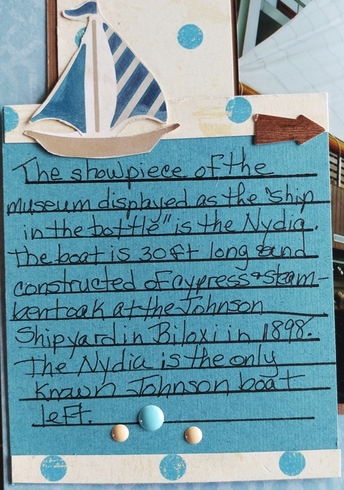 The showpiece of the
museum displayed as the "ship
in the bottle" is the Nydia.
The boat is 30 ft long and
constructed of cypress & steam-
bent oak at the Johnson
Shipyard in Biloxi in 1898.
The Nydia is the only
known Johnson boat
left.